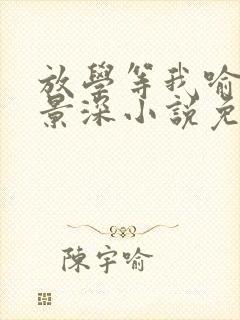 放學等我喻
景深小說免
陳宇喻